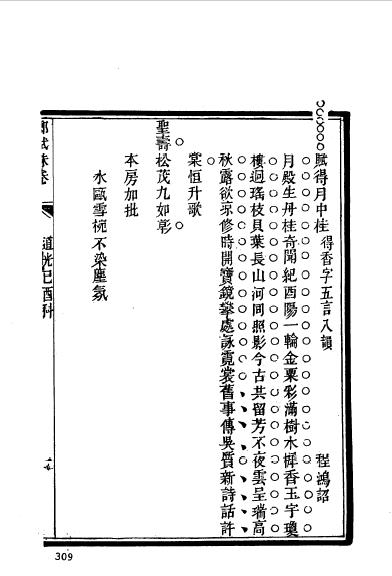 賦得月中桂 得香字五言八韻 程鴻詔
月殿生丹桂奇聞紀酉陽一輪金粟彩滿樹木樨香玉宇瓊
樓迥瑤枝貝葉長山河同照影今古共留芳不夜雲呈瑞高
秋露欲凉修時開寶鏡攀處詠霓裳舊事傳吳質新詩話許
棠恒升歌
聖壽松茂九如彰
本房加批
水甌雪椀不染塵氛
鄉試硃卷
道光己酉科
309